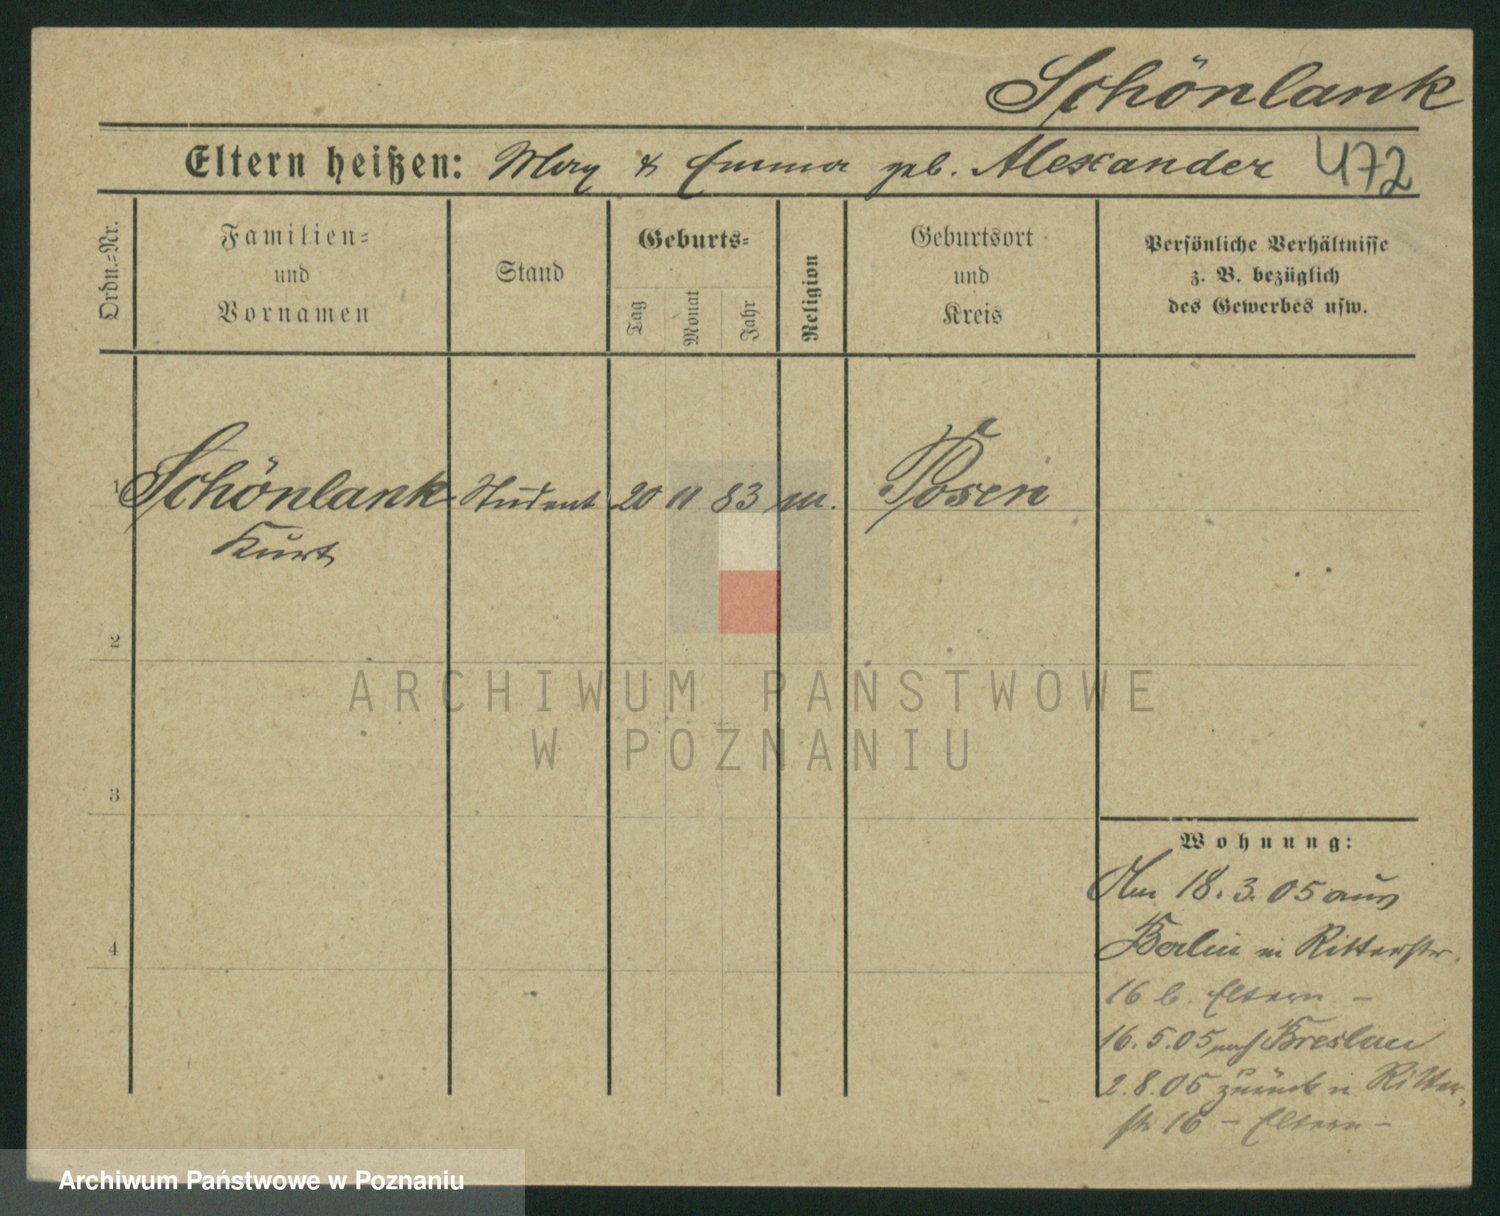 Schönlank
Eltern heißen: Max & Emma geb. Alexander 472
Ordn.-Nr.
Familien-
und
Vornamen
Stand
Geburts-
Tag
Monat
Jahr
Religion
Geburtsort
und
Kreis
Persönliche Verhältnisse
z. B. bezüglich
des Gewerbes usw.
1 Schönlank Student 20 11 83 m. Posen
Kurt
2
3
4
Wohnung:
Am 18.3.05 aus
Berlin in Ritterstr.
16 b. Eltern –
16.5.05 nach Breslau
2.8.05 zurück in Ritter-
str 16 – Eltern –
ARCHIWUM PAŃSTWOWE
W POZNANIU
Archiwum Państwowe w Poznaniu